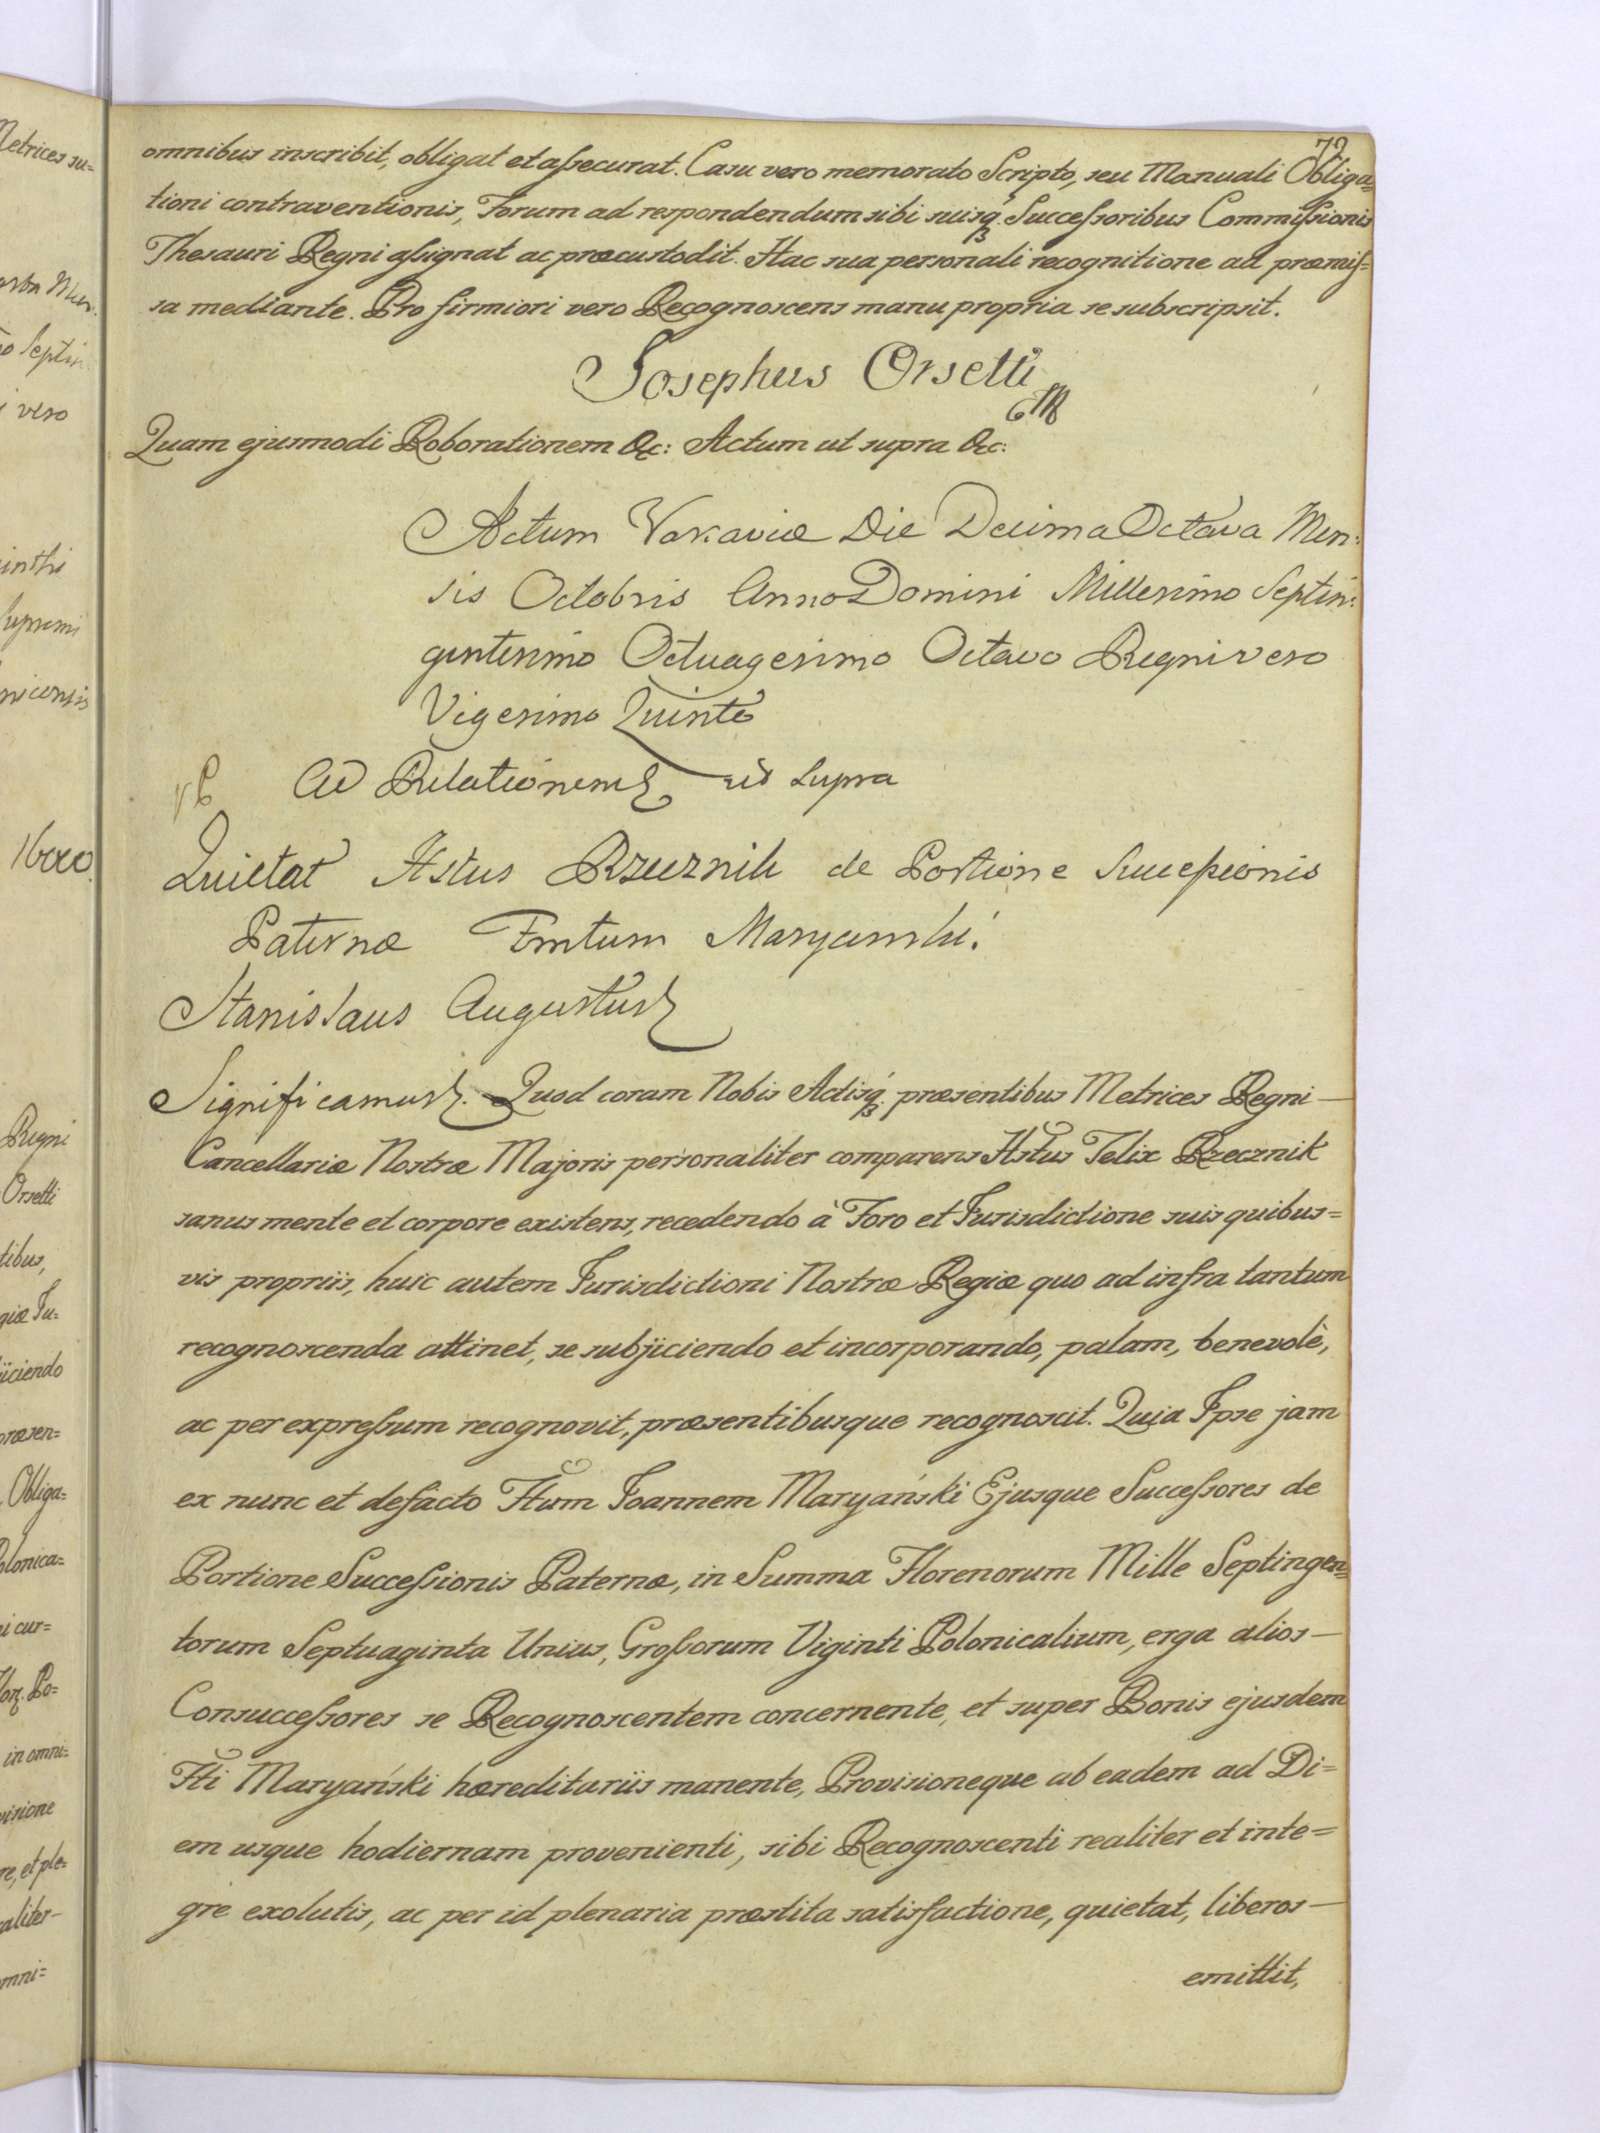 72
omnibus inscribit, obligat et assecurat. Casu vero memorato Scripto, seu Manuali Obliga=
tioni contraventionis, Forum ad respondendum sibi suisq́ꝫ Successoribus Commissionis
Thesauri Regni assignat ac præcustodit. Hac sua personali recognitione ad præmis=
sa mediante. Pro firmiori vero Recognoscens manu propria se subscripsit.
Josephus Orsetti
Quam ejusmodi Roborationem &c: Actum ut supra &c:
Actum Varsaviæ Die Decima Octava Men:
sis Octobris Anno Domini Millesimo Septin:
gentesimo Octuagesimo Octavo Regni vero
Vigesimo Quinto
Ad Relationem ut Supra
Quietat Hstus Rzecznik de Portione Successionis
Paternæ Gnrsum Maryanski.
Stanislaus Augustus
Significamus. Quod coram Nobis Actisq́ꝫ præsentibus Metrices Regni —
Cancellariæ Nostræ Majoris personaliter comparens Hstus Felix Rzecznik
sanus mente et corpore existens, recedendo à Foro et Jurisdictione suis quibus=
vis propriis, huic autem Jurisdictioni Nostræ Regiæ quo ad infra tantum
recognoscenda attinet, se subjiciendo et incorporando, palam, benevolè,
ac per expressum recognovit, præsentibusque recognoscit. Quia Ipse jam
ex nunc et defacto Gnm Joannem Maryański Ejusque Successores de
Portione Successionis Paternæ, in Summa Florenorum Mille Septingen=
torum Septuaginta Unius, Grossorum Viginti Polonicalium, erga alios —
Consuccessores se Recognoscentem concernente, et super Bonis ejusdem
Gni Maryański hæreditariis manente, Provisioneque ab eadem ad Di=
em usque hodiernam provenienti, sibi Recognoscenti realiter et inte=
gre exolutis, ac per id plenaria præstita satisfactione, quietat, liberos —
emittit,